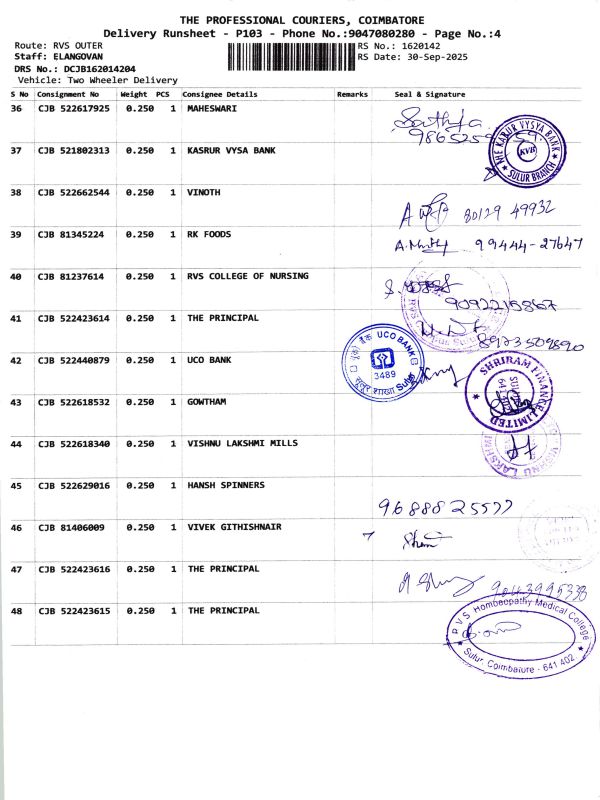 THE PROFESSIONAL COURIERS, COIMBATORE
Delivery Runsheet - P103 - Phone No.:9047080280 - Page No.:4
Route: RVS OUTER
RS No.: 1620142
Staff: ELANGOVAN
RS Date: 30-Sep-2025
DRS No.: DCJB162014204
Vehicle: Two Wheeler Delivery
S No Consignment No Weight PCS Consignee Details Remarks Seal & Signature
36 CJB 522617925 0.250 1 MAHESWARI
37 CJB 521802313 0.250 1 KASRUR VYSA BANK
THE KARUR VYSYA BANK
KVB
SULUR BRANCH
38 CJB 522662544 0.250 1 VINOTH
80129 49932
39 CJB 81345224 0.250 1 RK FOODS
99444-27647
40 CJB 81237614 0.250 1 RVS COLLEGE OF NURSING
9092215867
41 CJB 522423614 0.250 1 THE PRINCIPAL
42 CJB 522440879 0.250 1 UCO BANK
यूको बैंक UCO BANK
3489
सुलूर शाखा Sulur
43 CJB 522618532 0.250 1 GOWTHAM
SHRIRAM FINANCE LIMITED
44 CJB 522618340 0.250 1 VISHNU LAKSHMI MILLS
45 CJB 522629016 0.250 1 HANSH SPINNERS
9688825577
46 CJB 81406009 0.250 1 VIVEK GITHISHNAIR
47 CJB 522423616 0.250 1 THE PRINCIPAL
9043995338
48 CJB 522423615 0.250 1 THE PRINCIPAL
R V S Homoeopathy Medical College
Sulur, Coimbatore - 641 402.